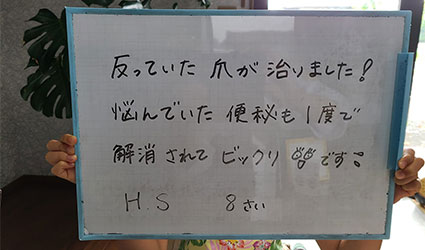 反っていた 爪が 治りました!
悩んでいた 便秘も 1度で
解消されて ビックリ!!です!
H.S 8さい